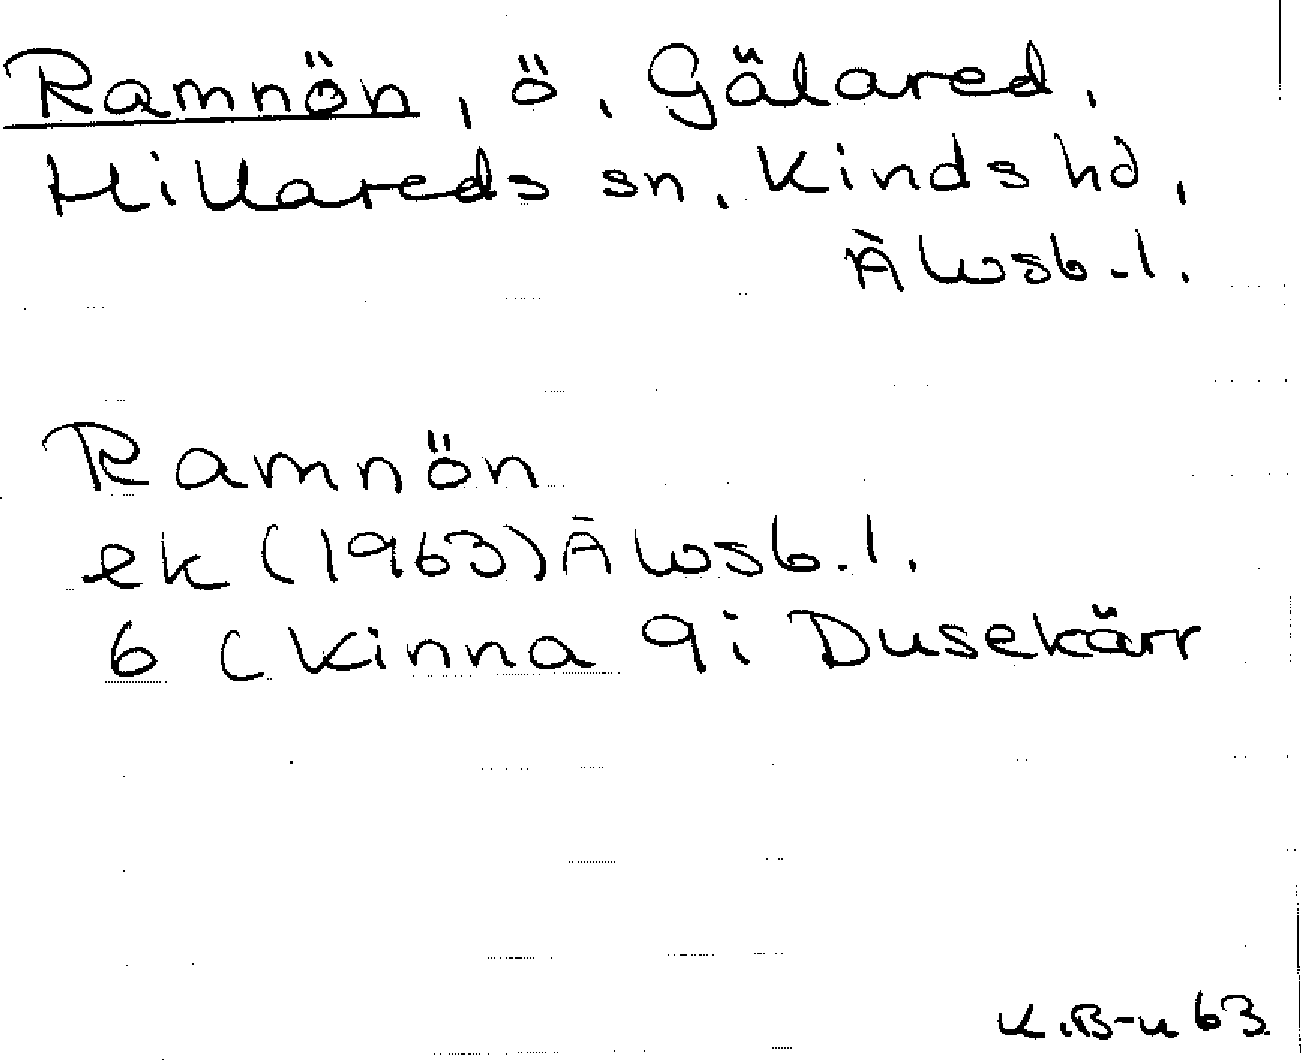 Ramnön, ö, Gälared,
Hillareds sn, Kinds hd,
Älvsb. l.
Ramnön
ek (1963) Älvsb. l.
6 C Kinna 9i Dusekärr
K.B-n 63